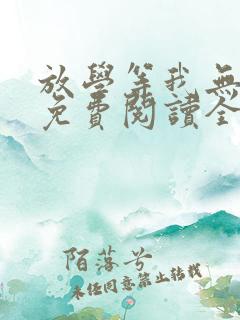 放學等我無
免費閱讀全
陌落兮
未经同意禁止转载